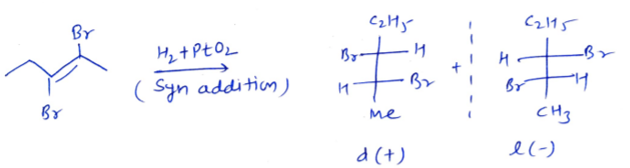 Br
Br
H₂ + PtO₂
(Syn addition)
C₂H₅
Br H
H Br
Me
d(+)
+
C₂H₅
H Br
Br H
CH₃
l(-)